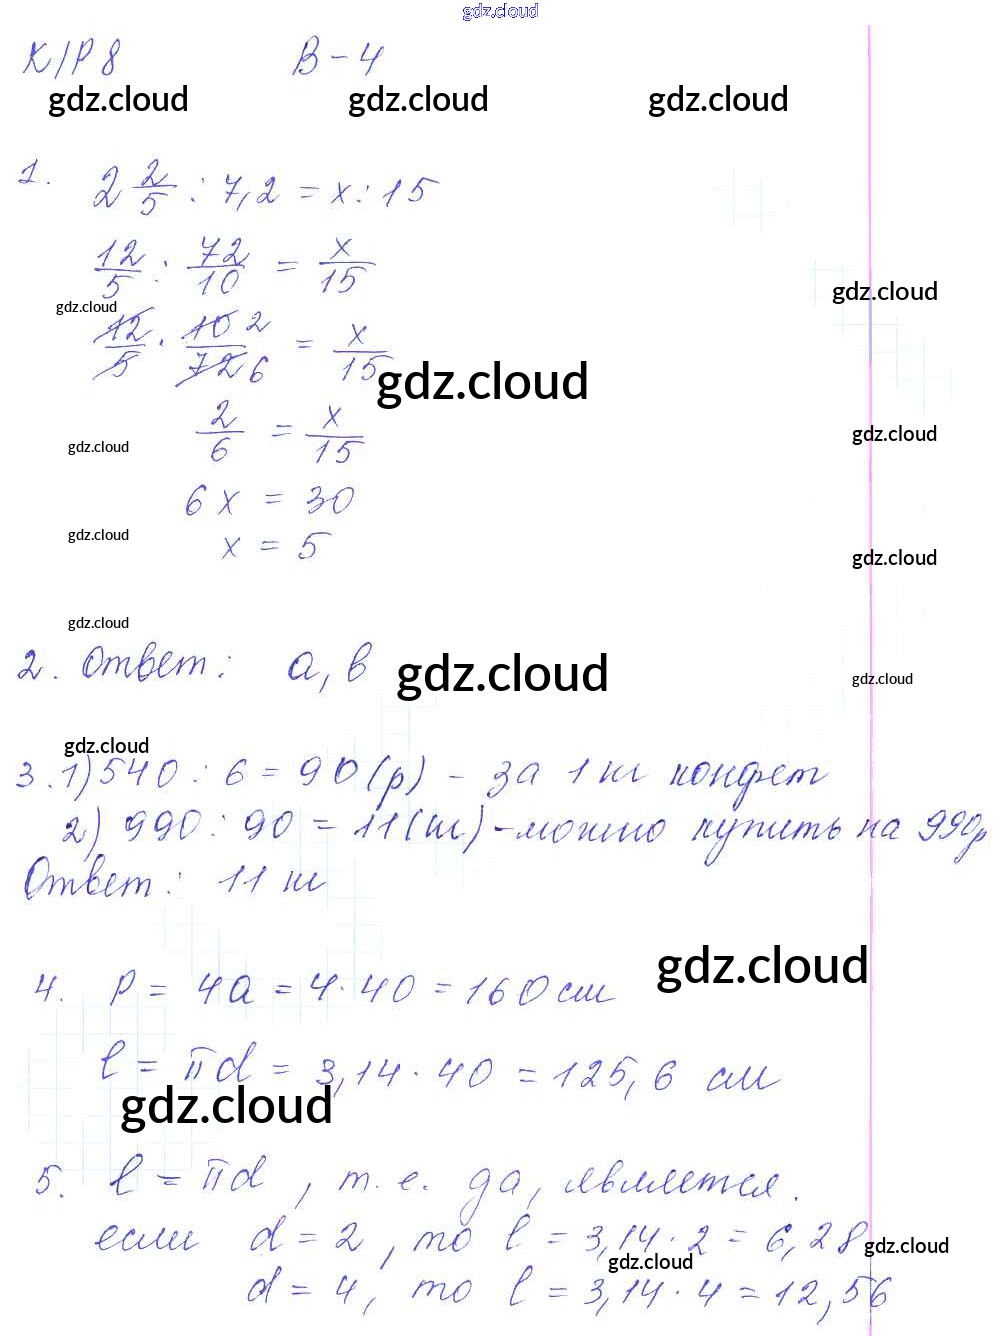 gdz.cloud
К/Р 8 В-4
gdz.cloud gdz.cloud gdz.cloud
1. 2 2/5 : 7,2 = x : 15
12/5 : 72/10 = x/15
gdz.cloud
gdz.cloud
12/5 · 10 2/72 6 = x/15
gdz.cloud
2/6 = x/15
gdz.cloud
gdz.cloud
6x = 30
x = 5
gdz.cloud
gdz.cloud
gdz.cloud
2. Ответ: а, в
gdz.cloud
gdz.cloud
gdz.cloud
3. 1) 540 : 6 = 90 (р) - за 1 кг конфет
2) 990 : 90 = 11 (кг) - можно купить на 990р
Ответ: 11 кг
gdz.cloud
4. P = 4a = 4 · 40 = 160 см
l = πd = 3,14 · 40 = 125,6 см
gdz.cloud
5. l = πd, т.е. да, является.
если d = 2, то l = 3,14 · 2 = 6,28
gdz.cloud
gdz.cloud
d = 4, то l = 3,14 · 4 = 12,56